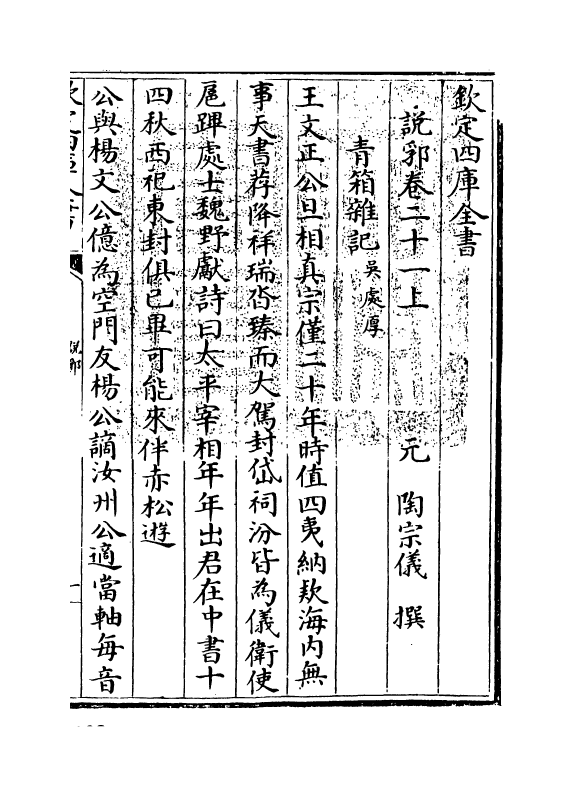 欽定四庫全書
説郛卷二十一上　元　陶宗儀　撰
青箱雜記吳處厚
王文正公旦相真宗僅二十年時值四夷納欵海内無
事天書荐降祥瑞沓臻而大駕封岱祠汾皆為儀衛使
扈蹕處士魏野獻詩曰太平宰相年年出君在中書十
四秋西祀東封俱已畢可能來伴赤松遊
公與楊文公億為空門友楊公謫汝州公適當軸每音
説郛
一